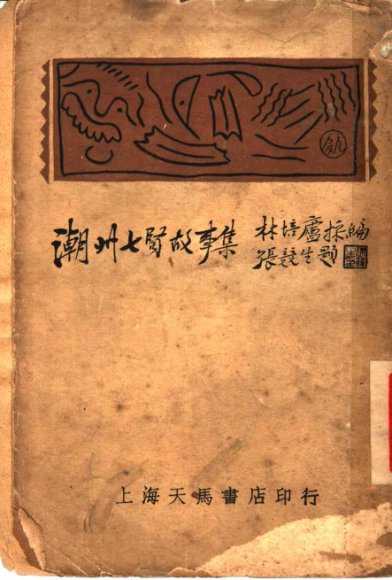 潮州七賢故事集
林培廬採編
張競生題
上海天馬書店印行